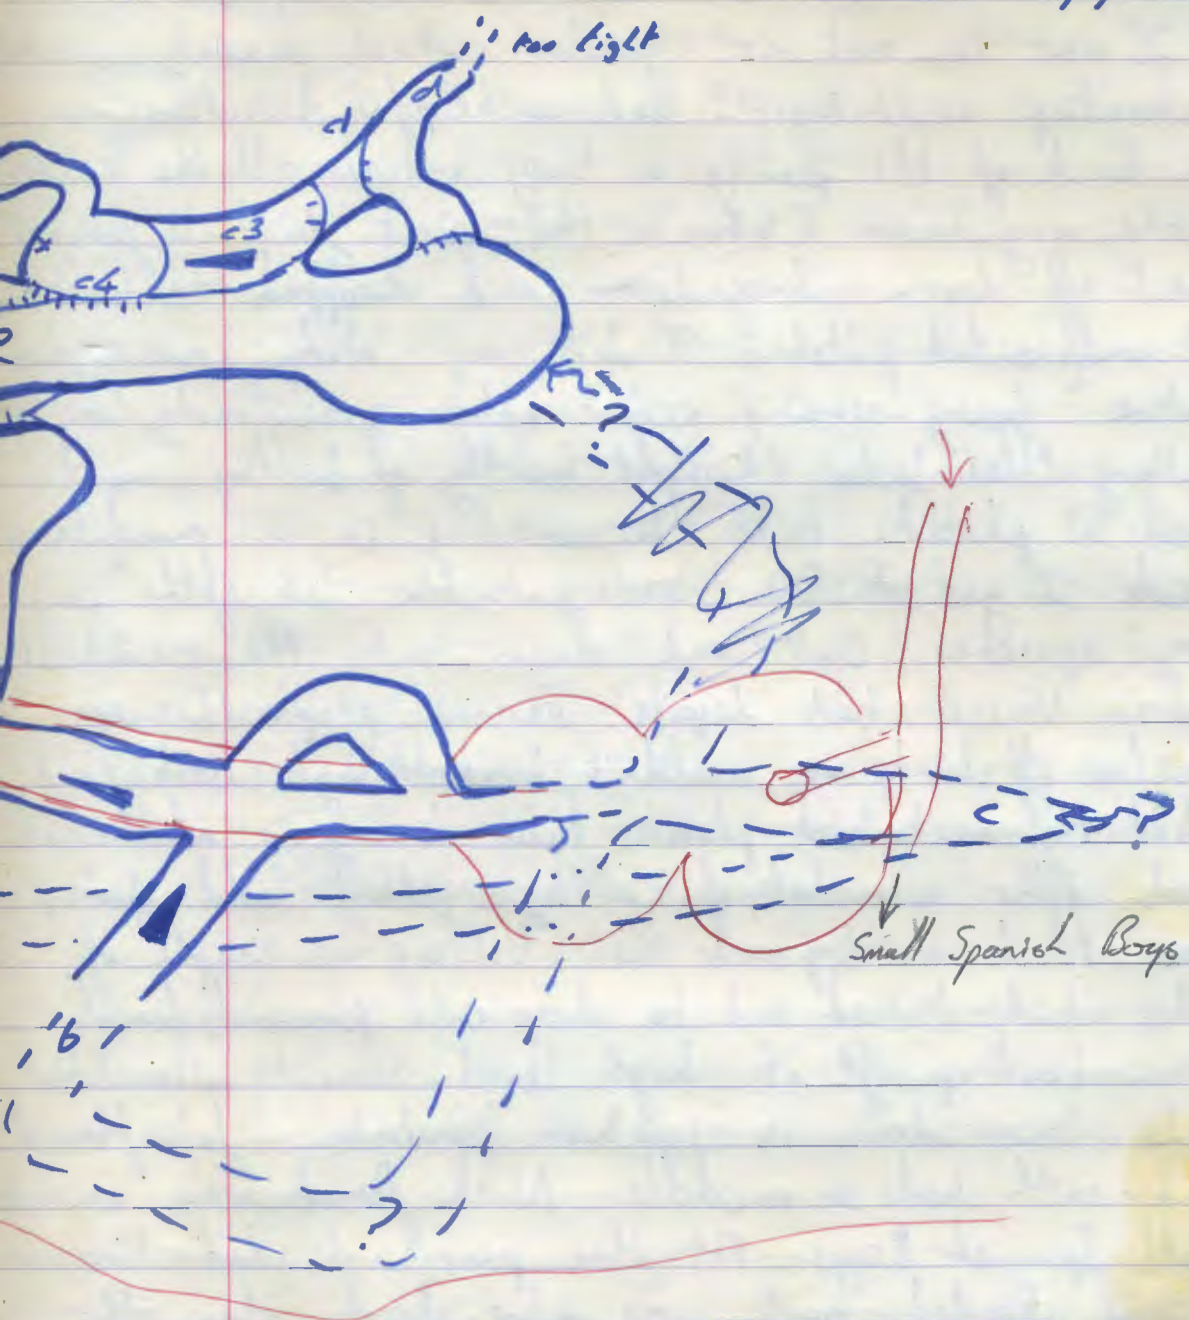 too tight
d
d
c3
x
c4
2
?
c ?
Small Spanish Boys
b
?